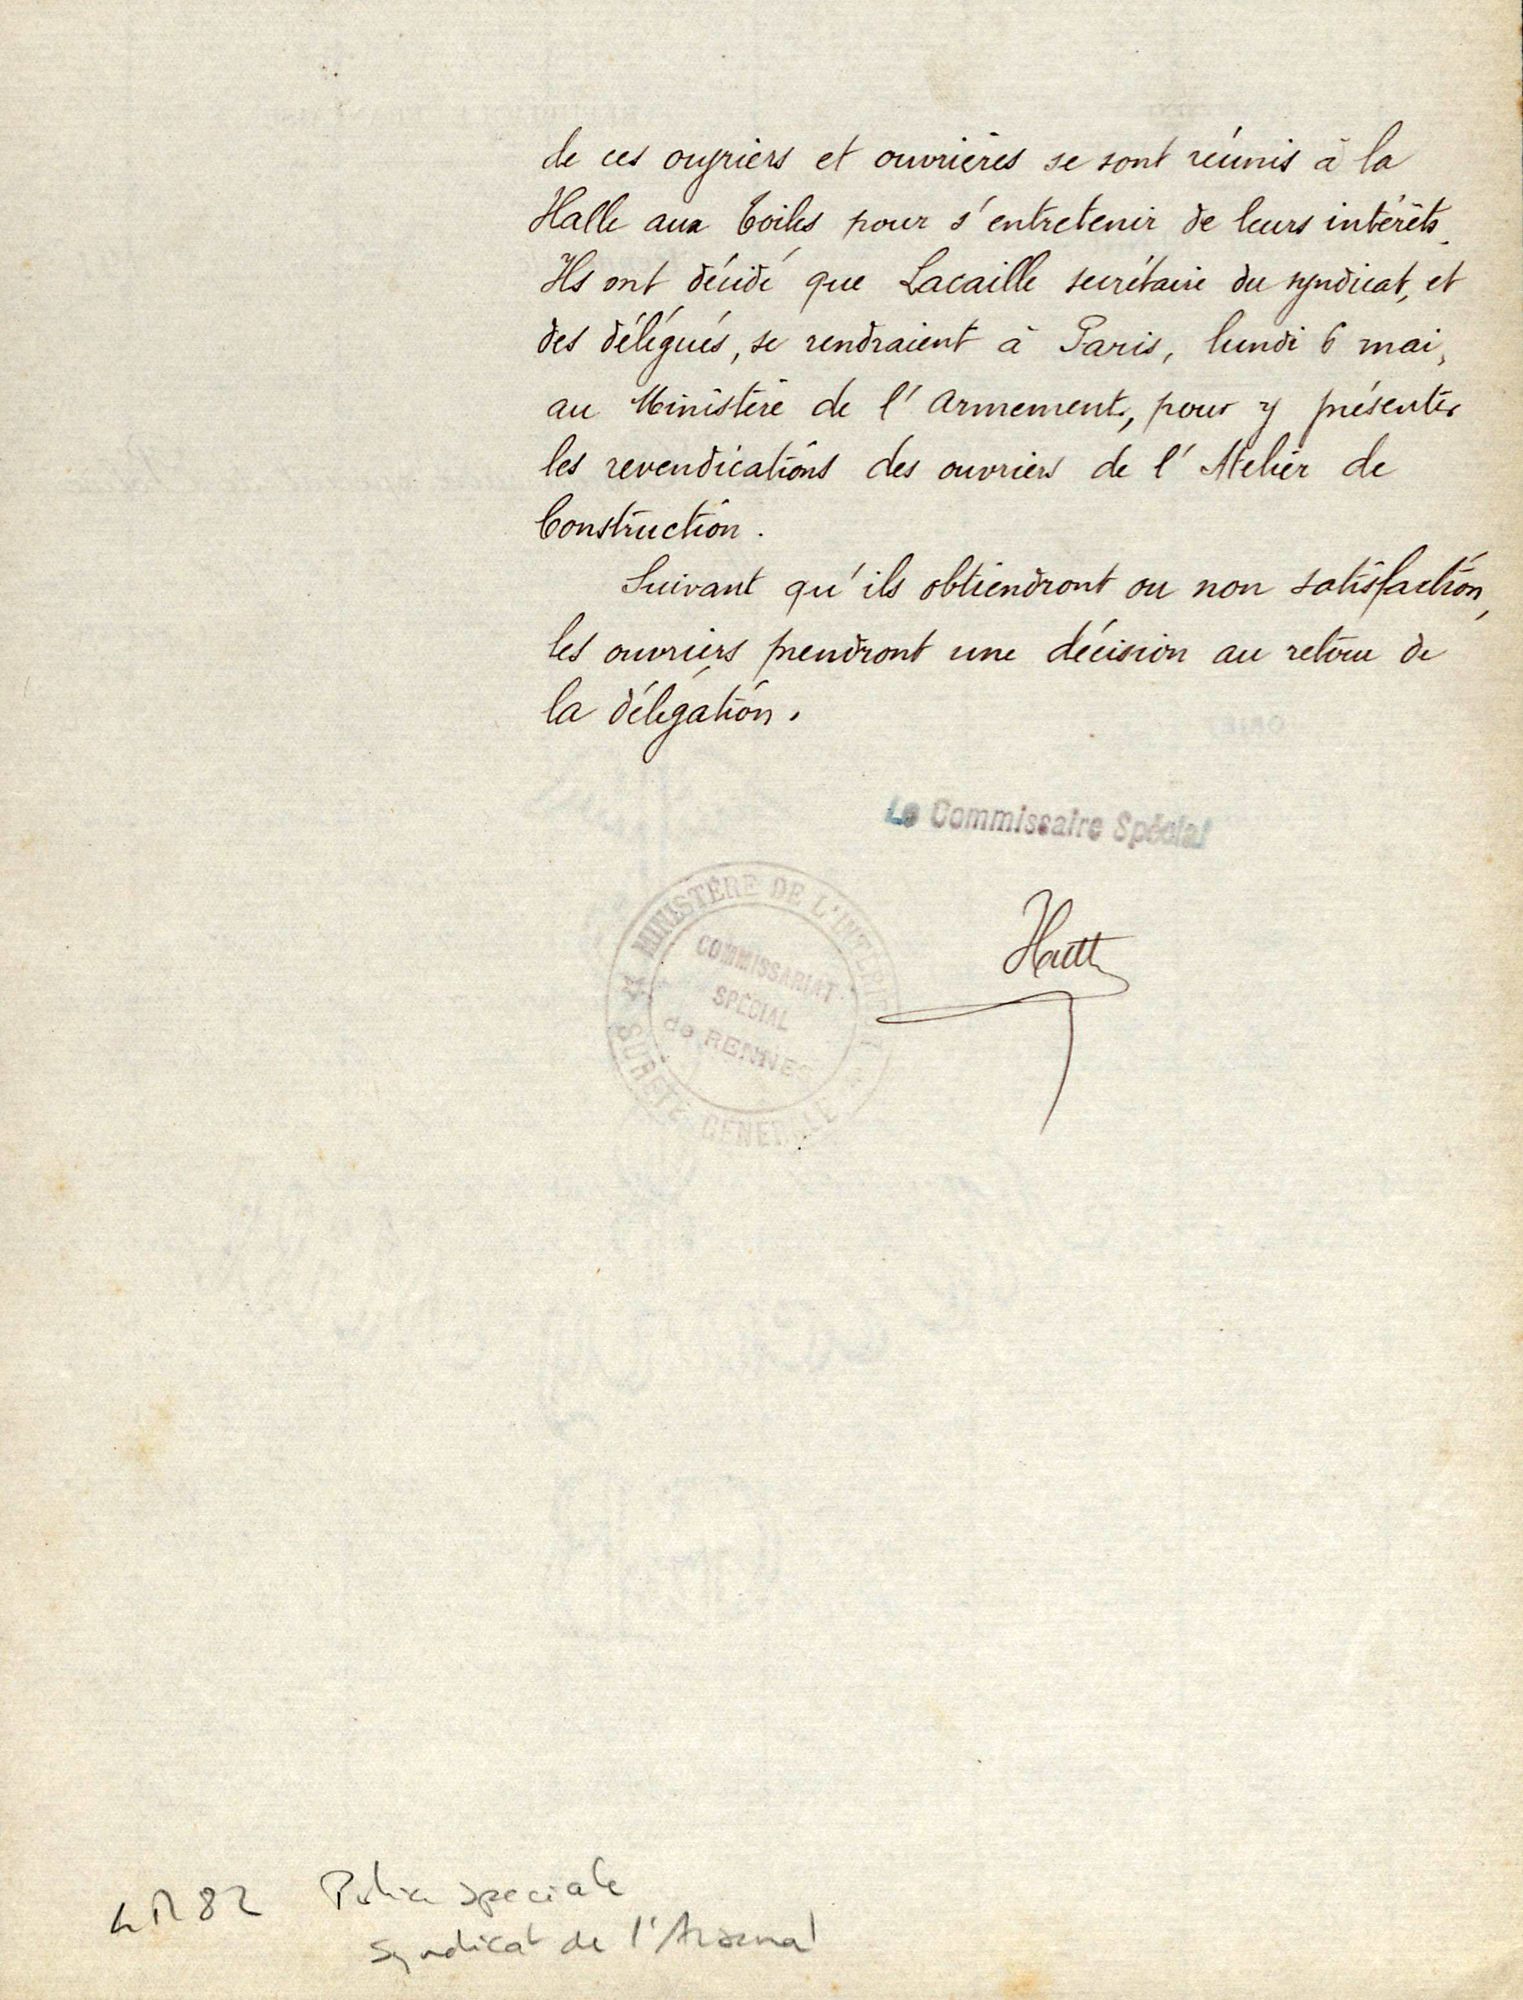 de ces ouvriers et ouvrières se sont réunis à la
Halle aux Toiles pour s'entretenir de leurs intérêts.
Ils ont décidé que Lacaille secrétaire du syndicat, et
des délégués, se rendraient à Paris, lundi 6 mai,
au Ministère de l'Armement, pour y présenter
les revendications des ouvriers de l'Atelier de
Construction.
Suivant qu'ils obtiendront ou non satisfaction,
les ouvriers prendront une décision au retour de
la délégation.
Le Commissaire Spécial
MINISTÈRE DE L'INTÉRIEUR
COMMISSARIAT
SPÉCIAL
de RENNES
SURETÉ GENERALE
4M82 Police speciale
Syndicat de l'Arsenal